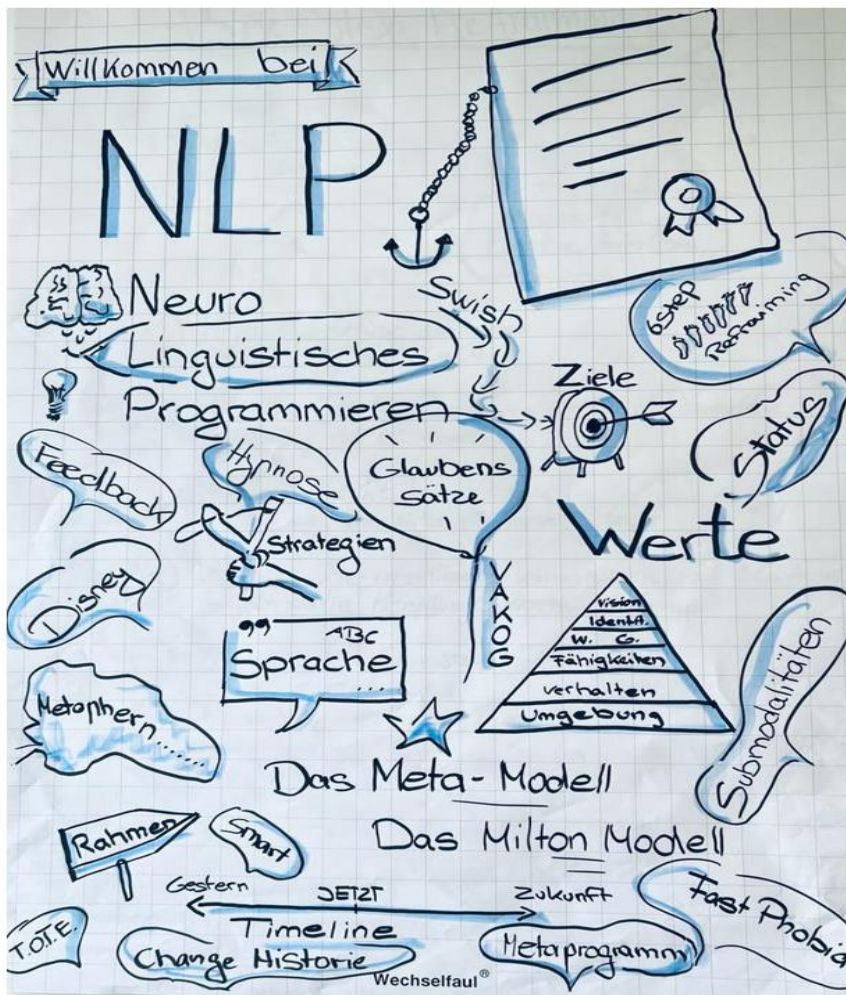 Willkommen bei
NLP
Neuro
Linguistisches
Programmieren
Swish
6step
Reframing
Ziele
Status
Feedback
Hypnose
Glaubens
sätze
Strategien
Werte
Disney
VAKOG
Vision
Identit.
W. G.
Fähigkeiten
Verhalten
Umgebung
„ ABC
Sprache
....
Submodalitäten
Metaphern.......
Das Meta-Modell
Rahmen
Smart
Das Milton Modell
Gestern JETZT Zukunft
Timeline
Fast Phobia
T.O.T.E.
Change Historie
Metaprogramm
Wechselfaul®